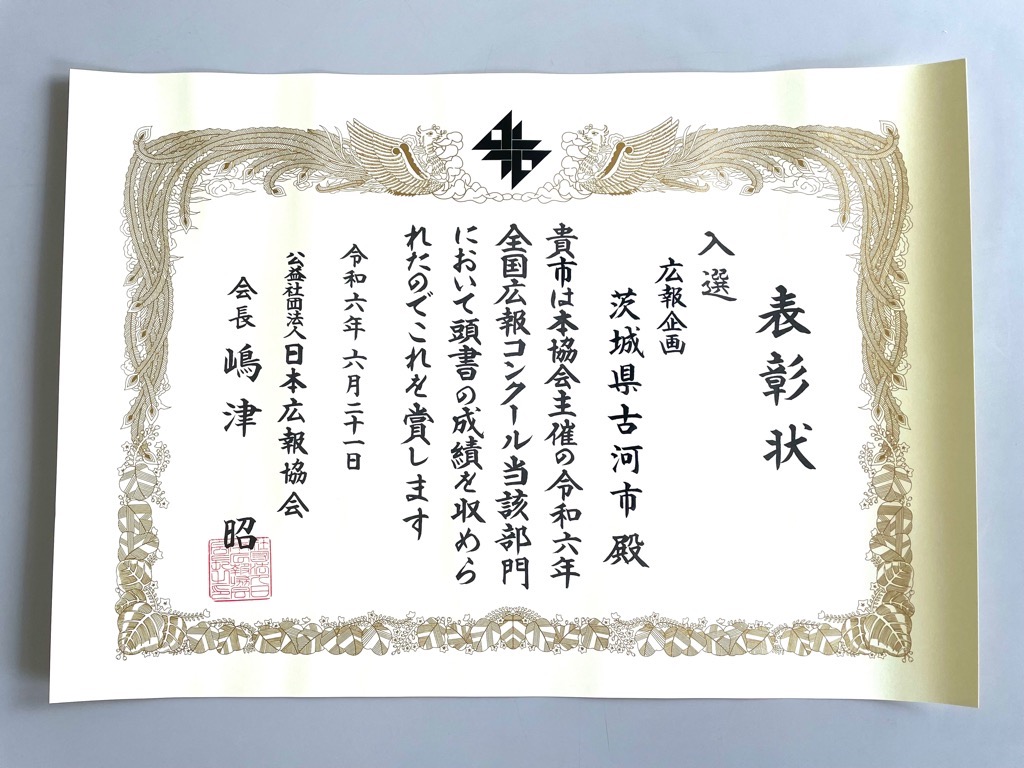 表彰状
入選
広報企画
茨城県古河市殿
貴市は本協会主催の令和六年
全国広報コンクール当該部門
において頭書の成績を収めら
れたのでこれを賞します
令和六年六月二十一日
公益社団法人日本広報協会
会長 嶋津 昭